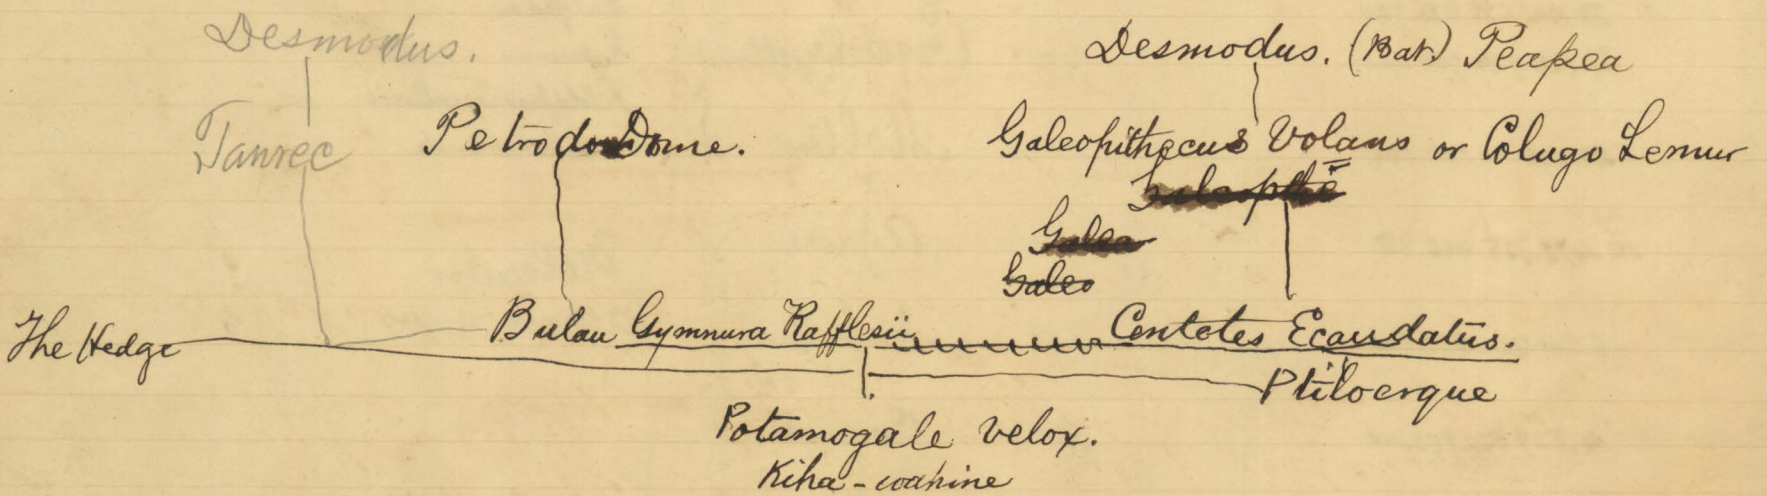 Desmodus. Desmodus. (Bat) Peapea
Tanrec Petrodomme. Galeopithecus Volans or Colugo Lemur
Galeopthe
Galea
Galeo
The Hedge Bulau Gymnura Rafflesii Centetes Ecaudatus.
Ptilocerque
Potamogale velox.
Kiha-wahine